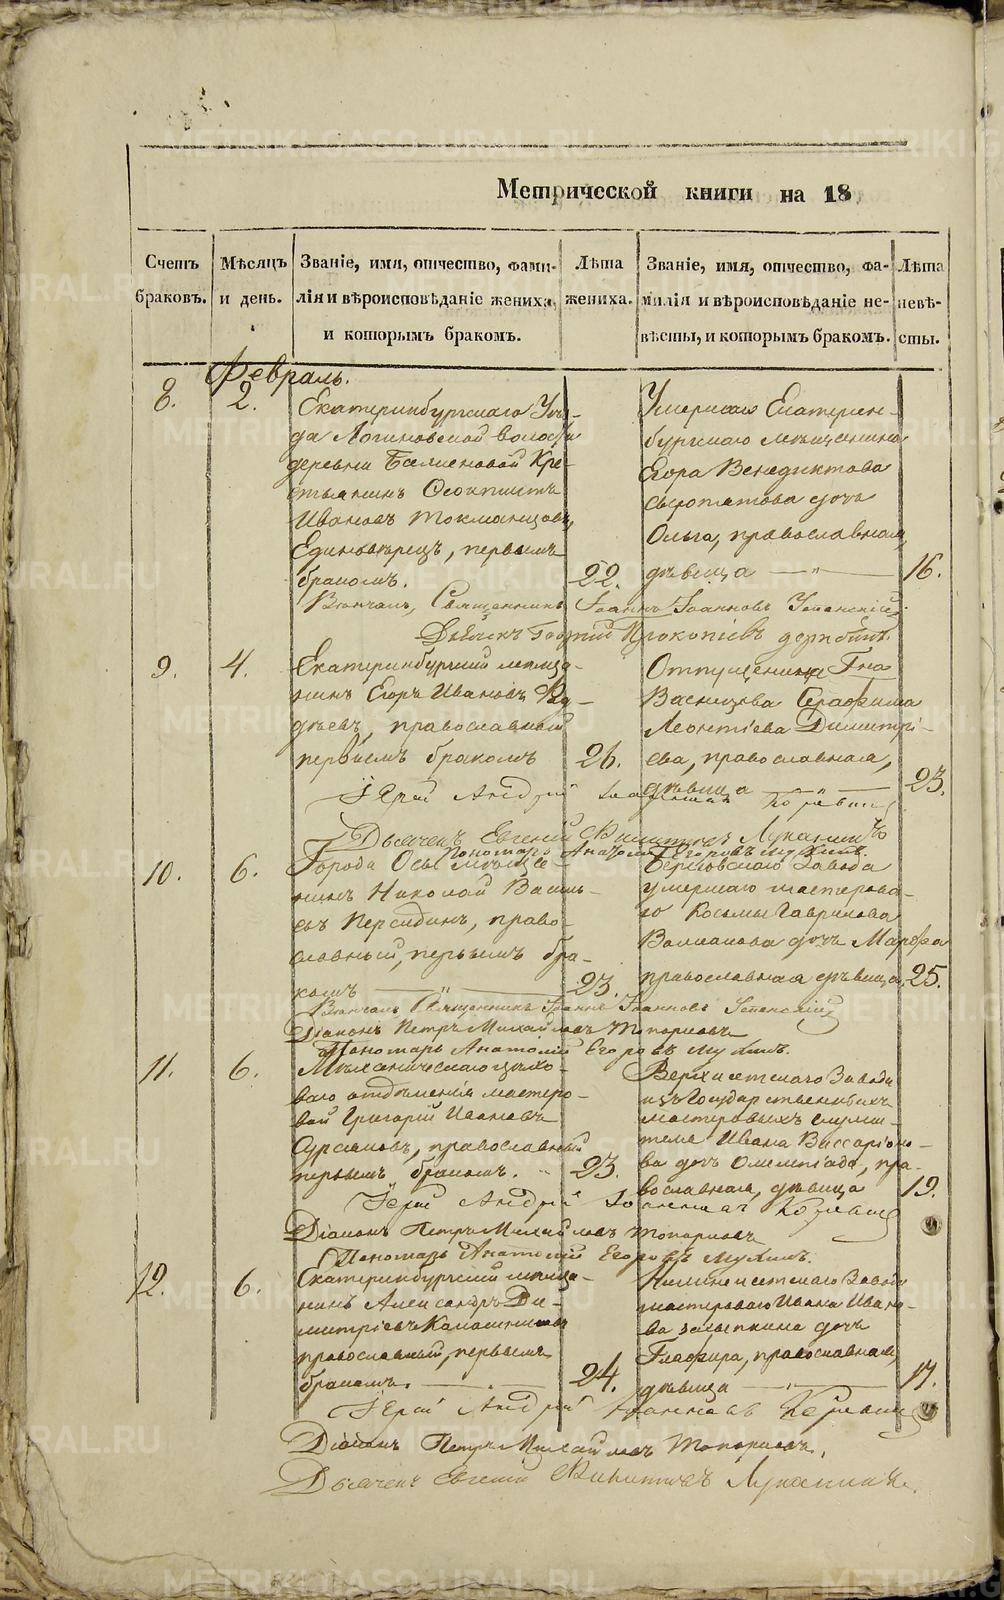 Метрической книги на 18
Счетъ браковъ.
Мѣсяцъ и день.
Званіе, имя, отчество, фами-
лія и вѣроисповѣданіе жениха,
и которымъ бракомъ.
Лѣта жениха.
Званіе, имя, отчество, фа-
милія и вѣроисповѣданіе не-
вѣсты, и которымъ бракомъ.
Лѣта невѣ-
сты.
Февраль.
8.
2.
Екатеринбургскаго Уѣз-
да Логиновской волости
деревни
Кре-
стьянинъ Феоктистъ
Ивановъ Токманцовъ,
Единовѣрецъ, первымъ
бракомъ.
22.
Умершаго Екатерин-
бургскаго мѣщанина
Егора Венедиктова
Сыропятова дочь
Ольга, православная,
дѣвица
16.
Вѣнчалъ, Священникъ Іоаннъ Іоанновъ Успенскій
Дьячекъ Георгій Прокопіевъ
9.
4.
Екатеринбургскій мѣща-
нинъ Егоръ Ивановъ
дѣевъ, православный
первымъ бракомъ
26.
Отпущеница Г-на
Васнецова Серафима
Леонтіева Димитрі-
ева, православная,
дѣвица
23.
Іерей Андрей Іоанновъ
Дьячекъ Евгеній Филиповъ Луканинъ
Пономарь Анатолій Егоровъ Мухинъ.
10.
6.
Города Осы мѣща-
нинъ Николай Василь-
евъ Персидинъ, право-
славный, первымъ бра-
комъ
23.
Березовскаго Завода
умершаго мастерова-
го Косьмы Гаврилова
дочь Марфа
православная дѣвица,
25.
Вѣнчалъ Священникъ Іоаннъ Іоанновъ Успенскій
Діаконъ Петръ Михайловъ Топорковъ
Пономарь Анатолій Егоровъ Мухинъ.
11.
6.
Механическаго цѣхо-
ваго отдѣленія мастеро-
вой Григорій Ивановъ
Сурсяковъ, православный
первымъ бракомъ.
23.
Верхисетскаго Завода
изъ Государственныхъ
мастеровыхъ служи-
теля Ивана Виссаріоно-
ва дочь Олимпіада, пра-
вославная, дѣвица
19.
Іерей Андрей Іоанновъ
Діаконъ Петръ Михайловъ Топорковъ
Пономарь Анатолій Егоровъ Мухинъ.
12.
6.
Екатеринбургскій мѣща-
нинъ Александръ Ди-
митріевъ Калашниковъ
православный, первымъ
бракомъ.
24.
Нижнеисетскаго Завода
мастероваго Ивана Ивано-
ва Засыпкина дочь
Глафира, православная,
дѣвица
17.
Іерей Андрей Іоанновъ
Діаконъ Петръ Михайловъ Топорковъ,
Дьячекъ Евгеній Филиповъ Луканинъ.
METRIKI.GASO-URAL.RU